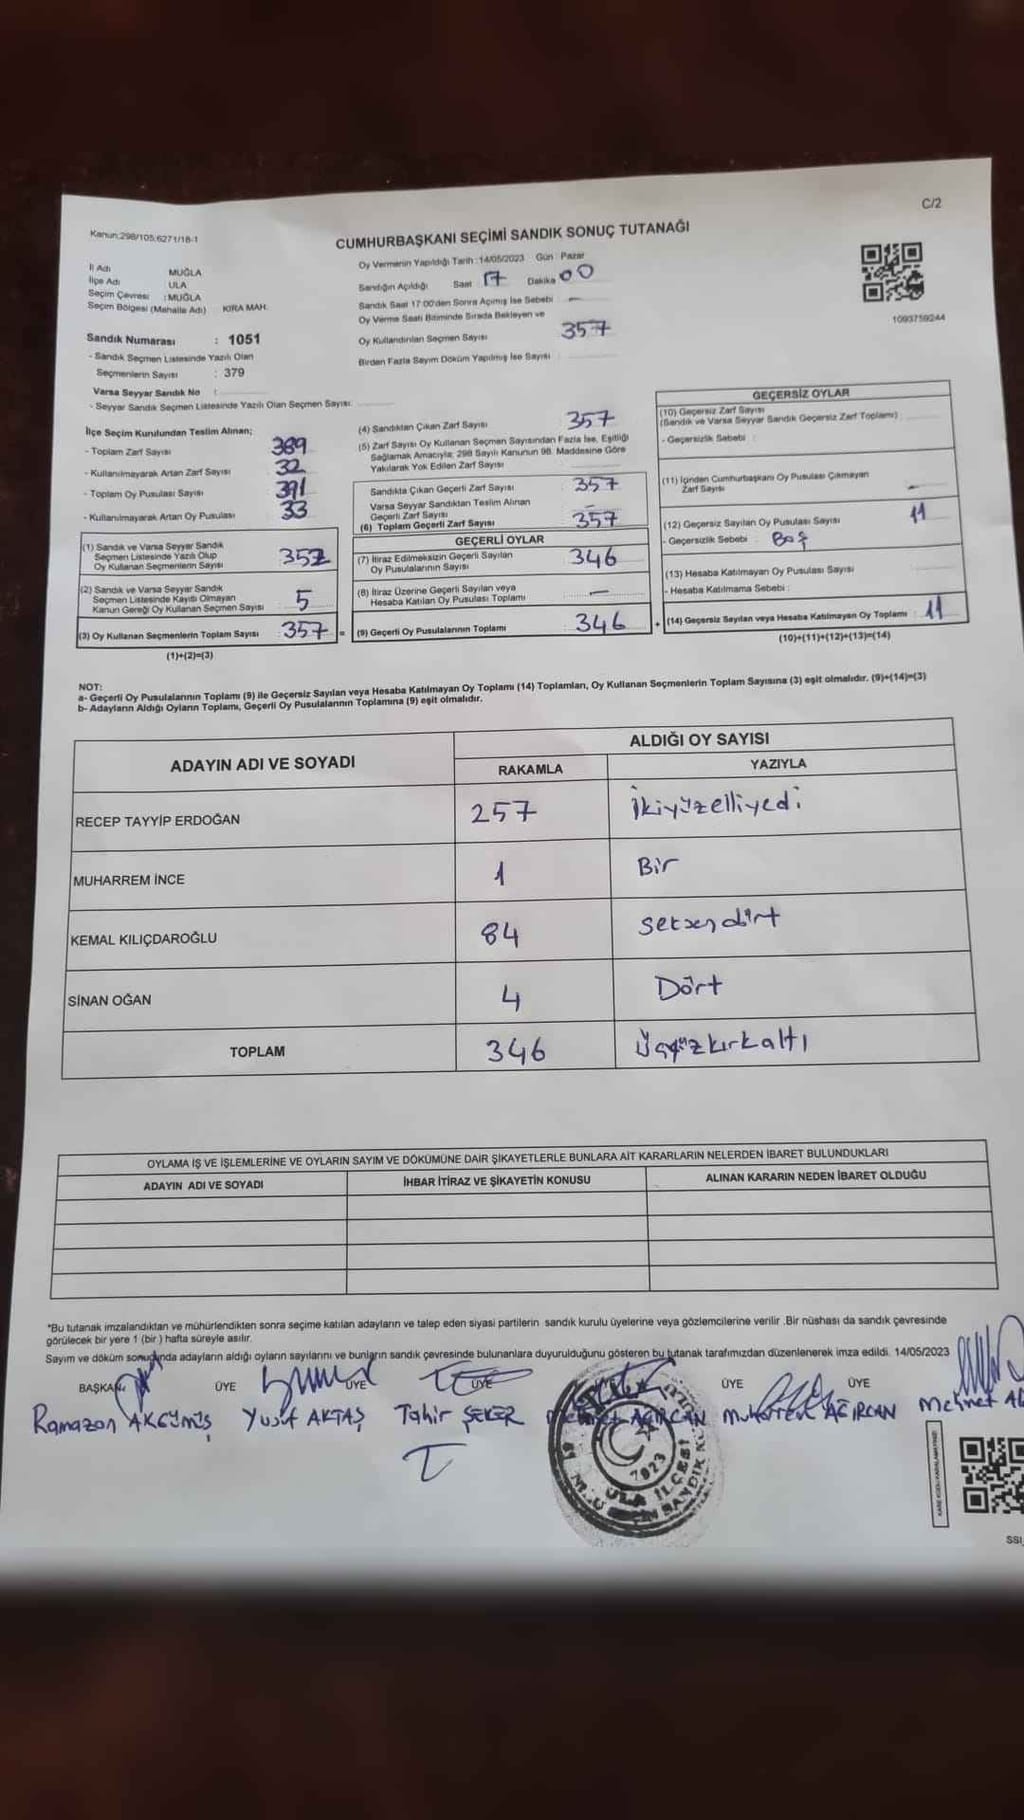 C/2
Kanun:298/105;6271/18-1
CUMHURBAŞKANI SEÇİMİ SANDIK SONUÇ TUTANAĞI
İl Adı MUĞLA
İlçe Adı ULA
Seçim Çevresi : MUĞLA
Seçim Bölgesi (Mahalle Adı) KIRA MAH.
Sandık Numarası : 1051
- Sandık Seçmen Listesinde Yazılı Olan
Seçmenlerin Sayısı : 379
Varsa Seyyar Sandık No :
- Seyyar Sandık Seçmen Listesinde Yazılı Olan Seçmen Sayısı:
Oy Vermenin Yapıldığı Tarih :14/05/2023 Gün Pazar
Sandığın Açıldığı Saat 17 Dakika 00
Sandık Saat 17:00'den Sonra Açımış İse Sebebi —
Oy Verme Saati Bitiminde Sırada Bekleyen ve
Oy Kullandırılan Seçmen Sayısı 357
Birden Fazla Sayım Döküm Yapılmış İse Sayısı
1093759244
İlçe Seçim Kurulundan Teslim Alınan;
- Toplam Zarf Sayısı 389
- Kullanılmayarak Artan Zarf Sayısı 32
- Toplam Oy Pusulası Sayısı 391
- Kullanılmayarak Artan Oy Pusulası 33
(1) Sandık ve Varsa Seyyar Sandık
Seçmen Listesinde Yazılı Olup
Oy Kullanan Seçmenlerin Sayısı 352
(2) Sandık ve Varsa Seyyar Sandık
Seçmen Listesinde Kayıtlı Olmayan
Kanun Gereği Oy Kullanan Seçmen Sayısı 5
(3) Oy Kullanan Seçmenlerin Toplam Sayısı 357 =
(1)+(2)=(3)
(4) Sandıktan Çıkan Zarf Sayısı 357
(5) Zarf Sayısı Oy Kullanan Seçmen Sayısından Fazla İse, Eşitliği
Sağlamak Amacıyla; 298 Sayılı Kanunun 98. Maddesine Göre
Yakılarak Yok Edilen Zarf Sayısı
Sandıkta Çıkan Geçerli Zarf Sayısı 357
Varsa Seyyar Sandıktan Teslim Alınan
Geçerli Zarf Sayısı
(6) Toplam Geçerli Zarf Sayısı 357
GEÇERLİ OYLAR
(7) İtiraz Edilmeksizin Geçerli Sayılan
Oy Pusulalarının Sayısı 346
(8) İtiraz Üzerine Geçerli Sayılan veya
Hesaba Katılan Oy Pusulası Toplamı —
(9) Geçerli Oy Pusulalarının Toplamı 346 +
GEÇERSİZ OYLAR
(10) Geçersiz Zarf Sayısı
(Sandık ve Varsa Seyyar Sandık Geçersiz Zarf Toplamı)
- Geçersizlik Sebebi :
(11) İçinden Cumhurbaşkanı Oy Pusulası Çıkmayan
Zarf Sayısı —
(12) Geçersiz Sayılan Oy Pusulası Sayısı 11
- Geçersizlik Sebebi : Boş
(13) Hesaba Katılmayan Oy Pusulası Sayısı
- Hesaba Katılmama Sebebi :
(14) Geçersiz Sayılan veya Hesaba Katılmayan Oy Toplamı : 11
(10)+(11)+(12)+(13)=(14)
NOT:
a- Geçerli Oy Pusulalarının Toplamı (9) ile Geçersiz Sayılan veya Hesaba Katılmayan Oy Toplamı (14) Toplamları, Oy Kullanan Seçmenlerin Toplam Sayısına (3) eşit olmalıdır. (9)+(14)=(3)
b- Adayların Aldığı Oyların Toplamı, Geçerli Oy Pusulalarının Toplamına (9) eşit olmalıdır.
ADAYIN ADI VE SOYADI ALDIĞI OY SAYISI
RAKAMLA YAZIYLA
RECEP TAYYİP ERDOĞAN 257 İkiyüzelliyedi
MUHARREM İNCE 1 Bir
KEMAL KILIÇDAROĞLU 84 Seksendört
SİNAN OĞAN 4 Dört
TOPLAM 346 Üçyüzkırkaltı
OYLAMA İŞ VE İŞLEMLERİNE VE OYLARIN SAYIM VE DÖKÜMÜNE DAİR ŞİKAYETLERLE BUNLARA AİT KARARLARIN NELERDEN İBARET BULUNDUKLARI
ADAYIN ADI VE SOYADI İHBAR İTİRAZ VE ŞİKAYETİN KONUSU ALINAN KARARIN NEDEN İBARET OLDUĞU
*Bu tutanak imzalandıktan ve mühürlendikten sonra seçime katılan adayların ve talep eden siyasi partilerin sandık kurulu üyelerine veya gözlemcilerine verilir .Bir nüshası da sandık çevresinde
görülecek bir yere 1 (bir ) hafta süreyle asılır.
Sayım ve döküm sonuğında adayların aldığı oyların sayılarını ve bunların sandık çevresinde bulunanlara duyurulduğunu gösteren bu tutanak tarafımızdan düzenlenerek imza edildi. 14/05/2023
BAŞKAN ÜYE ÜYE ÜYE ÜYE ÜYE
Ramazan AKGÜMÜŞ Yusuf AKTAŞ Tahir ŞEKER Mehmet AĞIRCAN Muharrem AĞIRCAN Mehmet
2023
ULA İLÇESİ
SSI